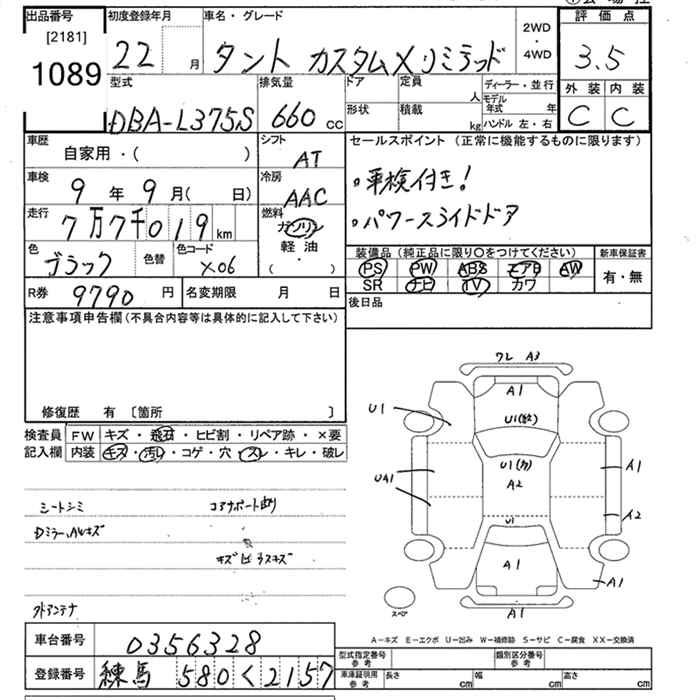 出品番号
[2181]
1089
初度登録年月
22 月
車名・グレード
タント カスタムXリミテッド
2WD
・
4WD
評価点
3.5
外装 内装
C C
型式
DBA-L375S
排気量
660 cc
ドア
形状
定員
人
積載
kg
ディーラー・並行
モデル年式 年
ハンドル 左・右
車歴
自家用・( )
シフト
AT
車検
9 年 9 月( 日)
冷房
AAC
走行
7万7千019 km
燃料
ガソリン
軽油
( )
色
ブラック
色替
色コード
X06
R券
9790 円
名変期限 月 日
セールスポイント (正常に機能するものに限ります)
。車検付き!
。パワースライドドア
装備品 (純正品に限り○をつけてください)
PS PW ABS エアB AW
SR ナビ TV カワ
新車保証書
有・無
後日品
注意事項申告欄 (不具合内容等は具体的に記入して下さい)
修復歴 有 〔箇所 〕
検査員
記入欄
FW キズ・飛石・ヒビ割・リペア跡・×要
内装 キズ・汚れ・コゲ・穴・スレ・キレ・破レ
シートシミ
Dミラー、AWキズ
外アンテナ
ワレ A3
A1
U1
U1
A2
UA1
A1
A2
U1
A1
A1
A1
スペア
A−キズ E−エクボ U−凹み W−補修跡 S−サビ C−腐食 XX−交換済
車台番号
0356328
登録番号
練馬 580 く 2157
型式指定番号
参考
類別区分番号
参考
車庫証明用
参考
長さ cm
幅 cm
高さ cm